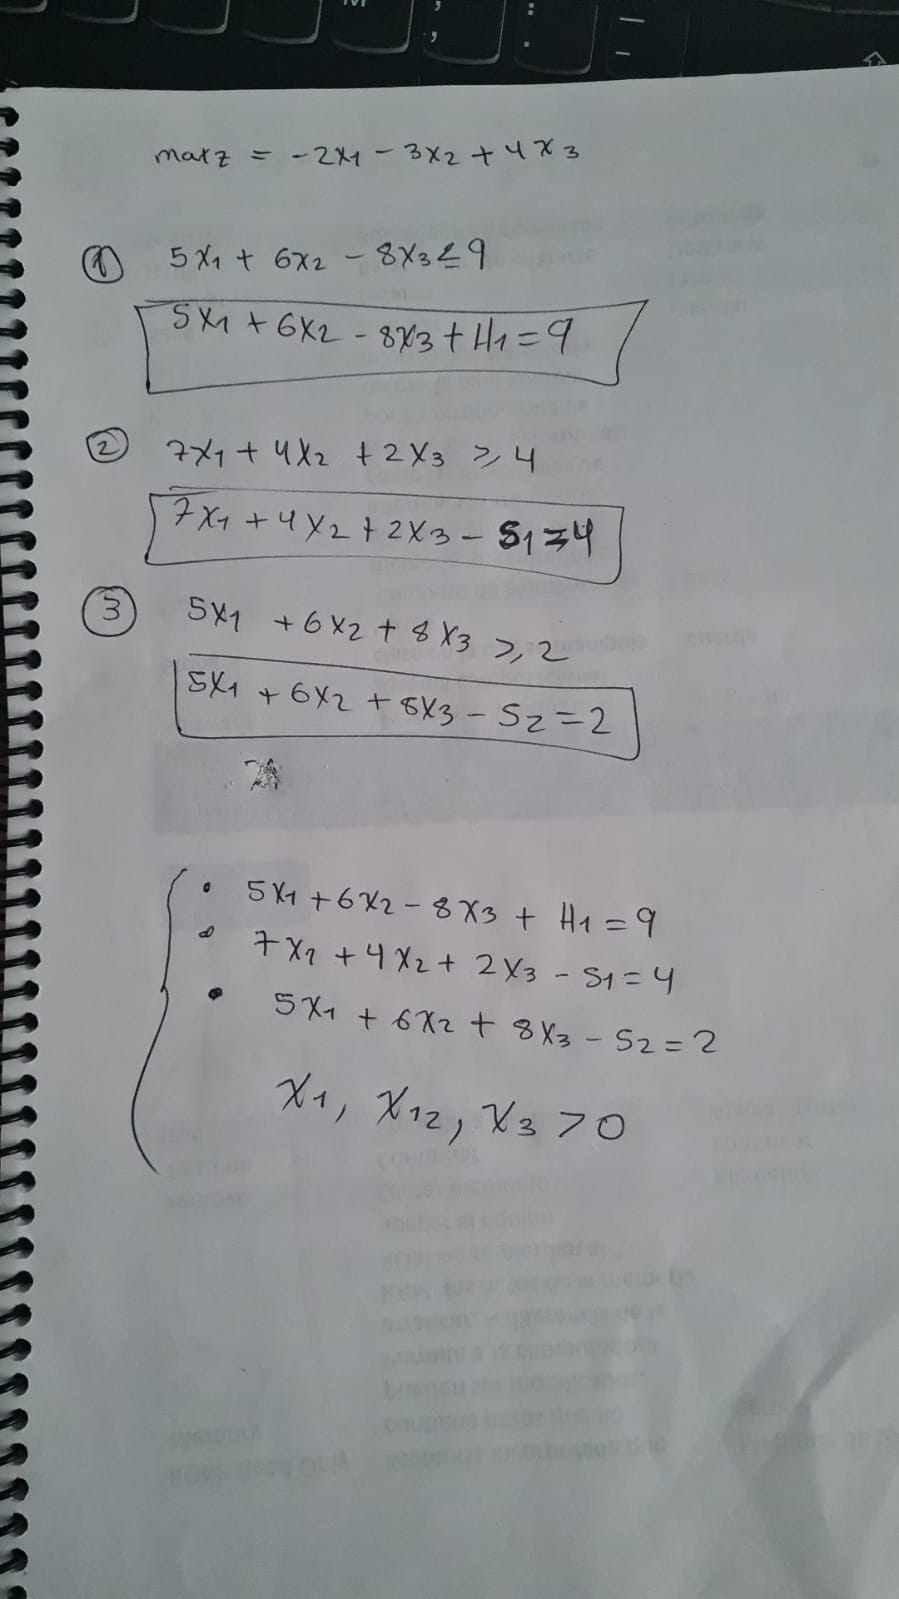 max z = -2x1 - 3x2 + 4x3
① 5x1 + 6x2 - 8x3 ≤ 9
5x1 + 6x2 - 8x3 + H1 = 9
② 7x1 + 4x2 + 2x3 ≥ 4
7x1 + 4x2 + 2x3 - S1 = 4
③ 5x1 + 6x2 + 8x3 ≥ 2
5x1 + 6x2 + 8x3 - S2 = 2
• 5x1 + 6x2 - 8x3 + H1 = 9
• 7x1 + 4x2 + 2x3 - S1 = 4
• 5x1 + 6x2 + 8x3 - S2 = 2
x1, x12, x3 > 0